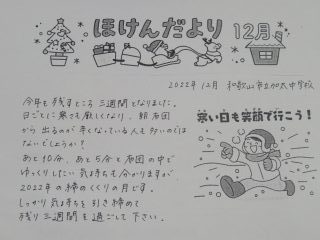 ほけんだより 12月
2022年 12月 和歌山市立加太中学校
今年も残すところ三週間となりました。
日ごとに寒さも厳しくなり、朝布団
から出るのが辛くなっている人も多いのでは
ないでしょうか?
あと10分、あと5分と布団の中で
ゆっくりしたい気持ちも分かりますが
2022年の締めくくりの月です。
しっかり気持ちを引き締めて
残り三週間を過ごして下さい。
寒い日も笑顔で行こう!